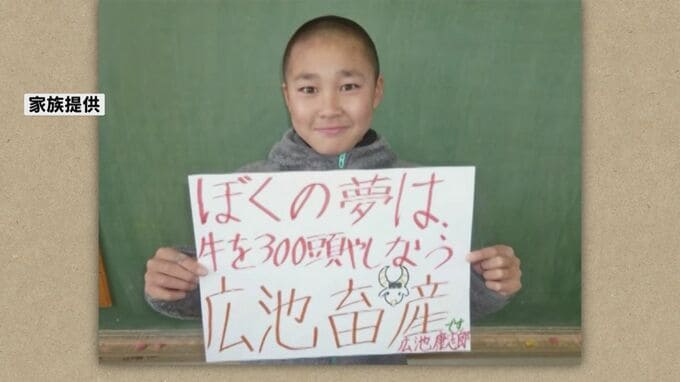 家族提供
ぼくの夢は、
牛を300頭やしなう
広池畜産
です
広池